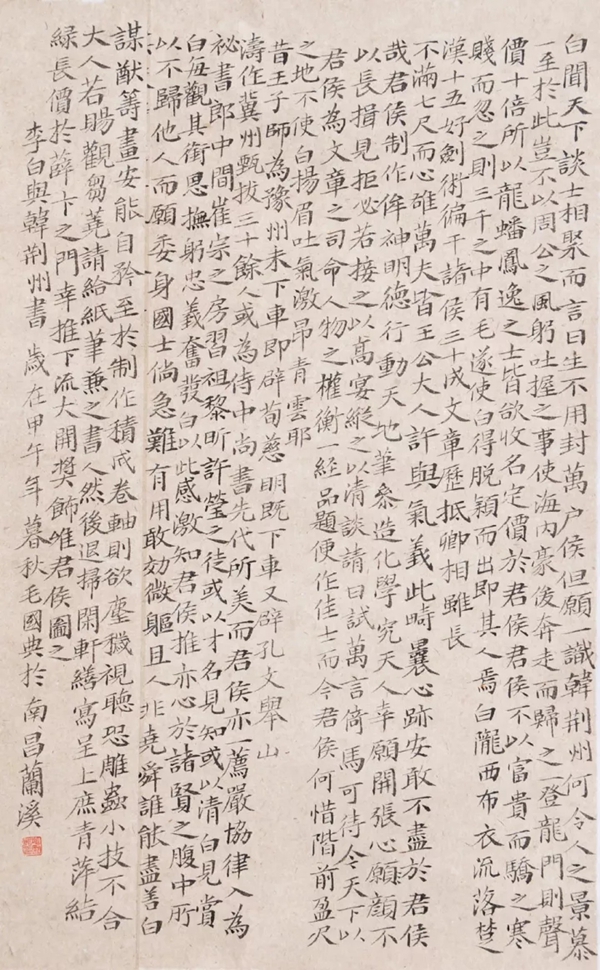 白聞天下談士相聚而言曰生不用封萬户侯但願一識韓荆州何令人之景慕
一至於此豈不以周公之風躬吐握之事使海内豪俊奔走而歸之一登龍門則聲
價十倍所以龍蟠鳳逸之士皆欲收名定價於君侯君侯不以富貴而驕之寒
賤而忽之則三千之中有毛遂使白得脱穎而出即其人焉白隴西布衣流落楚
漢十五好劍術徧干諸侯三十成文章歷抵卿相雖長
不滿七尺而心雄萬夫皆王公大人許與氣義此疇曩心跡安敢不盡於君侯
哉君侯制作侔神明德行動天地筆參造化學究天人幸願開張心顔不
以長揖見拒必若接之以高宴縱之以清談請日試萬言倚馬可待今天下以
君侯為文章之司命人物之權衡一經品題便作佳士而今君侯何惜階前盈尺
之地不使白揚眉吐氣激昂青雲耶
昔王子師為豫州未下車即辟荀慈明既下車又辟孔文舉山
濤作冀州甄拔三十餘人或為侍中尚書先代所美而君侯亦一薦嚴協律入為
祕書郎中間崔宗之房習祖黎昕許瑩之徒或以才名見知或以清白見賞
白每觀其銜恩撫躬忠義奮發白以此感激知君侯推赤心於諸賢之腹中所
以不歸他人而願委身國士倘急難有用敢効微軀且人非堯舜誰能盡善白
謀猷籌畫安能自矜至於制作積成卷軸則欲塵穢視聽恐雕蟲小技不合
大人若賜觀芻蕘請給紙筆兼之書人然後退掃閑軒繕寫呈上庶青萍結
緑長價於薛卞之門幸推下流大開獎飾唯君侯圖之
李白與韓荆州書 歲在甲午年暮秋毛國典於南昌蘭溪